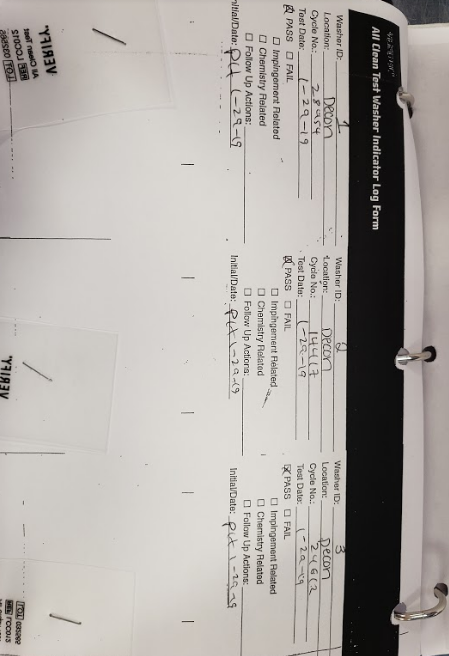 All Clean Test Washer Indicator Log Form
Washer ID: 1
Location: Decon
Cycle No.: 28954
Test Date: 1-29-19
☒ PASS ☐ FAIL
☐ Impingement Related
☐ Chemistry Related
☐ Follow Up Actions:
Initial/Date: PH 1-29-19
Washer ID: 2
Location: Decon
Cycle No.: 14417
Test Date: 1-29-19
☒ PASS ☐ FAIL
☐ Impingement Related
☐ Chemistry Related
☐ Follow Up Actions:
Initial/Date: PH 1-29-19
Washer ID: 3
Location: Decon
Cycle No.: 24612
Test Date: 1-29-19
☒ PASS ☐ FAIL
☐ Impingement Related
☐ Chemistry Related
☐ Follow Up Actions:
Initial/Date: PH 1-29-19
VERIFY
All Clean Test
REF LCC012
LOT 035292
VERIFY
LOT 035292
REF LCC012